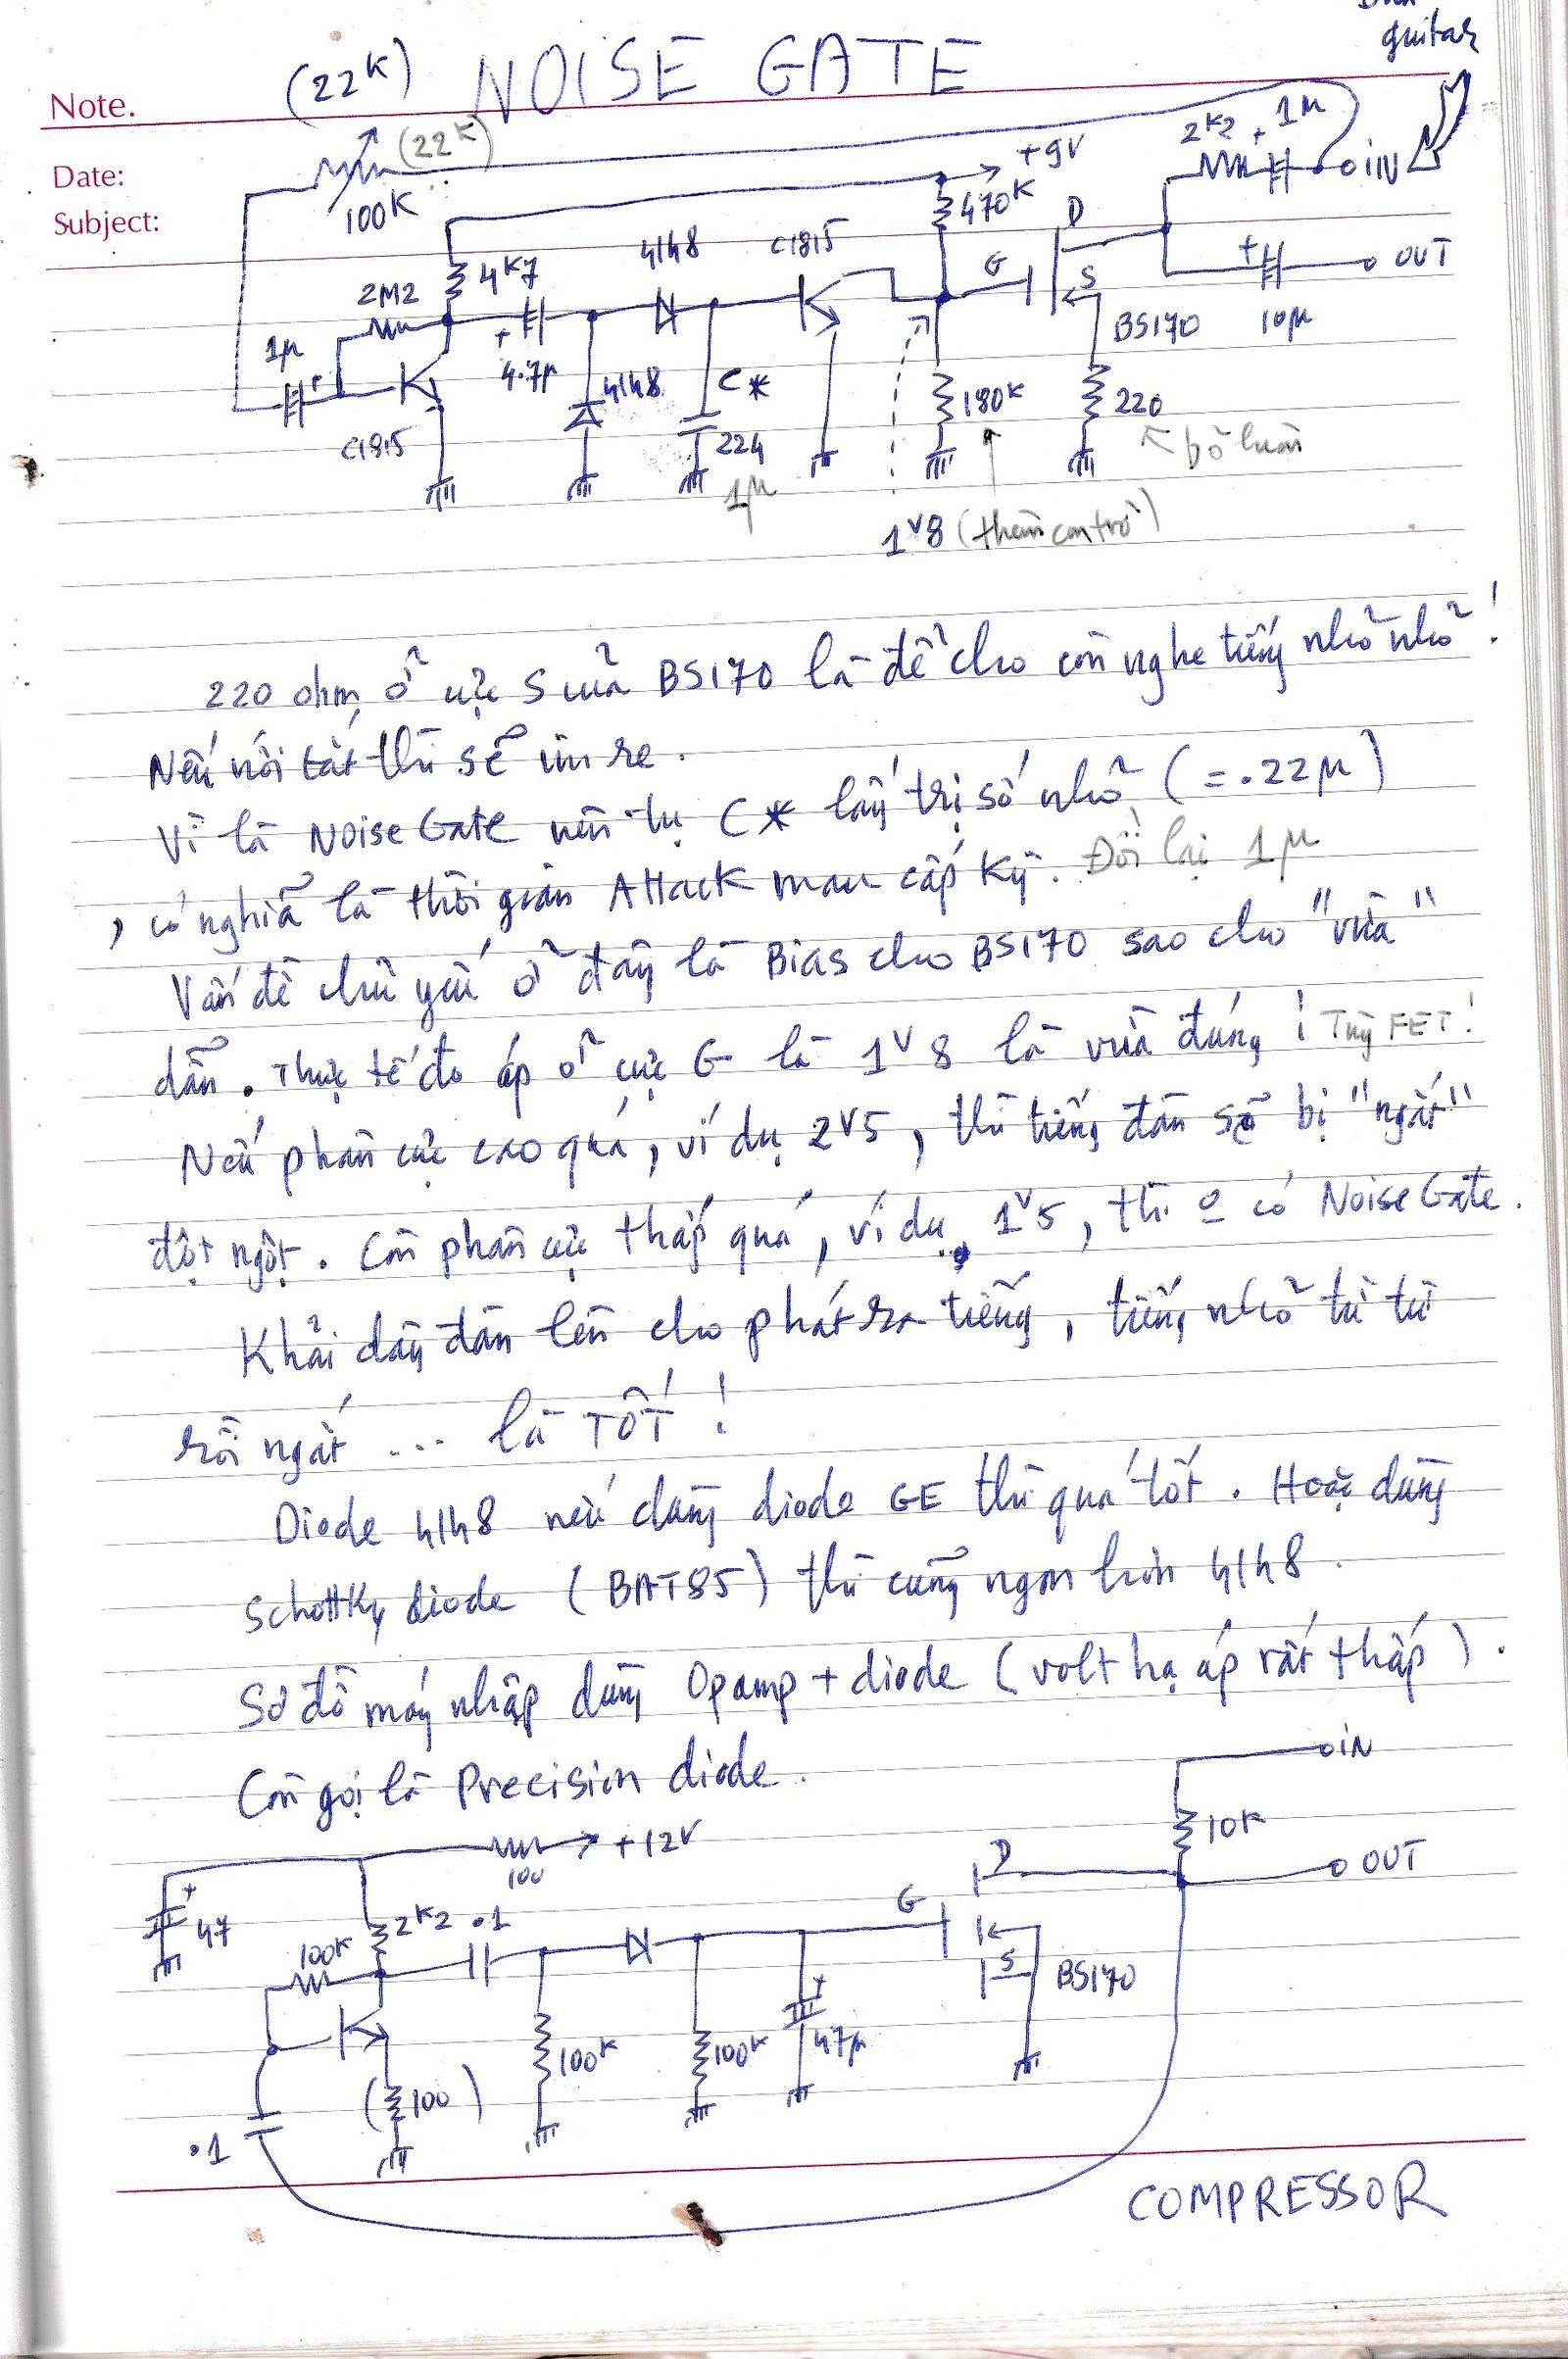 guitar
(22K) NOISE GATE
Note.
Date:
Subject:
(22K)
100K
+9V
2K2
+ 1µ
IN
470K
D
4148
C1815
4K7
2M2
G
S
+
OUT
BS170
10µ
1µ
+
+
4.7µ
4148
C*
180K
220
C1815
224
1µ
bỏ luôn
1V8 (thêm con trở)
220 ohm ở cực S của BS170 là để cho còn nghe tiếng nhỏ nhỏ!
Nếu nối tắt thì sẽ im re.
Vì là Noise Gate nên tụ C* lấy trị số nhỏ (= .22µ)
, có nghĩa là thời gian Attack mau cấp kỳ. Đổi lại 1µ
Vấn đề chủ yếu ở đây là Bias cho BS170 sao cho "vừa"
dẫn. Thực tế đo áp ở cực G là 1V8 là vừa đúng! Tùy FET!
Nếu phân cực cao quá, ví dụ 2V5, thì tiếng đàn sẽ bị "ngắt"
đột ngột. Còn phân cực thấp quá, ví dụ 1V5, thì o có Noise Gate.
Khải dây đàn lên cho phát ra tiếng, tiếng nhỏ từ từ
rồi ngắt ... là TỐT!
Diode 4148 nếu dùng diode GE thì quá tốt. Hoặc dùng
Schottky diode (BAT85) thì cũng ngon hơn 4148.
Sơ đồ máy nhập dùng Opamp + diode (volt hạ áp rất thấp).
Còn gọi là Precision diode.
IN
10K
+12V
100
D
OUT
+
47
2K2
.1
G
100K
S
BS170
+
47µ
100K
100K
(100)
.1
COMPRESSOR